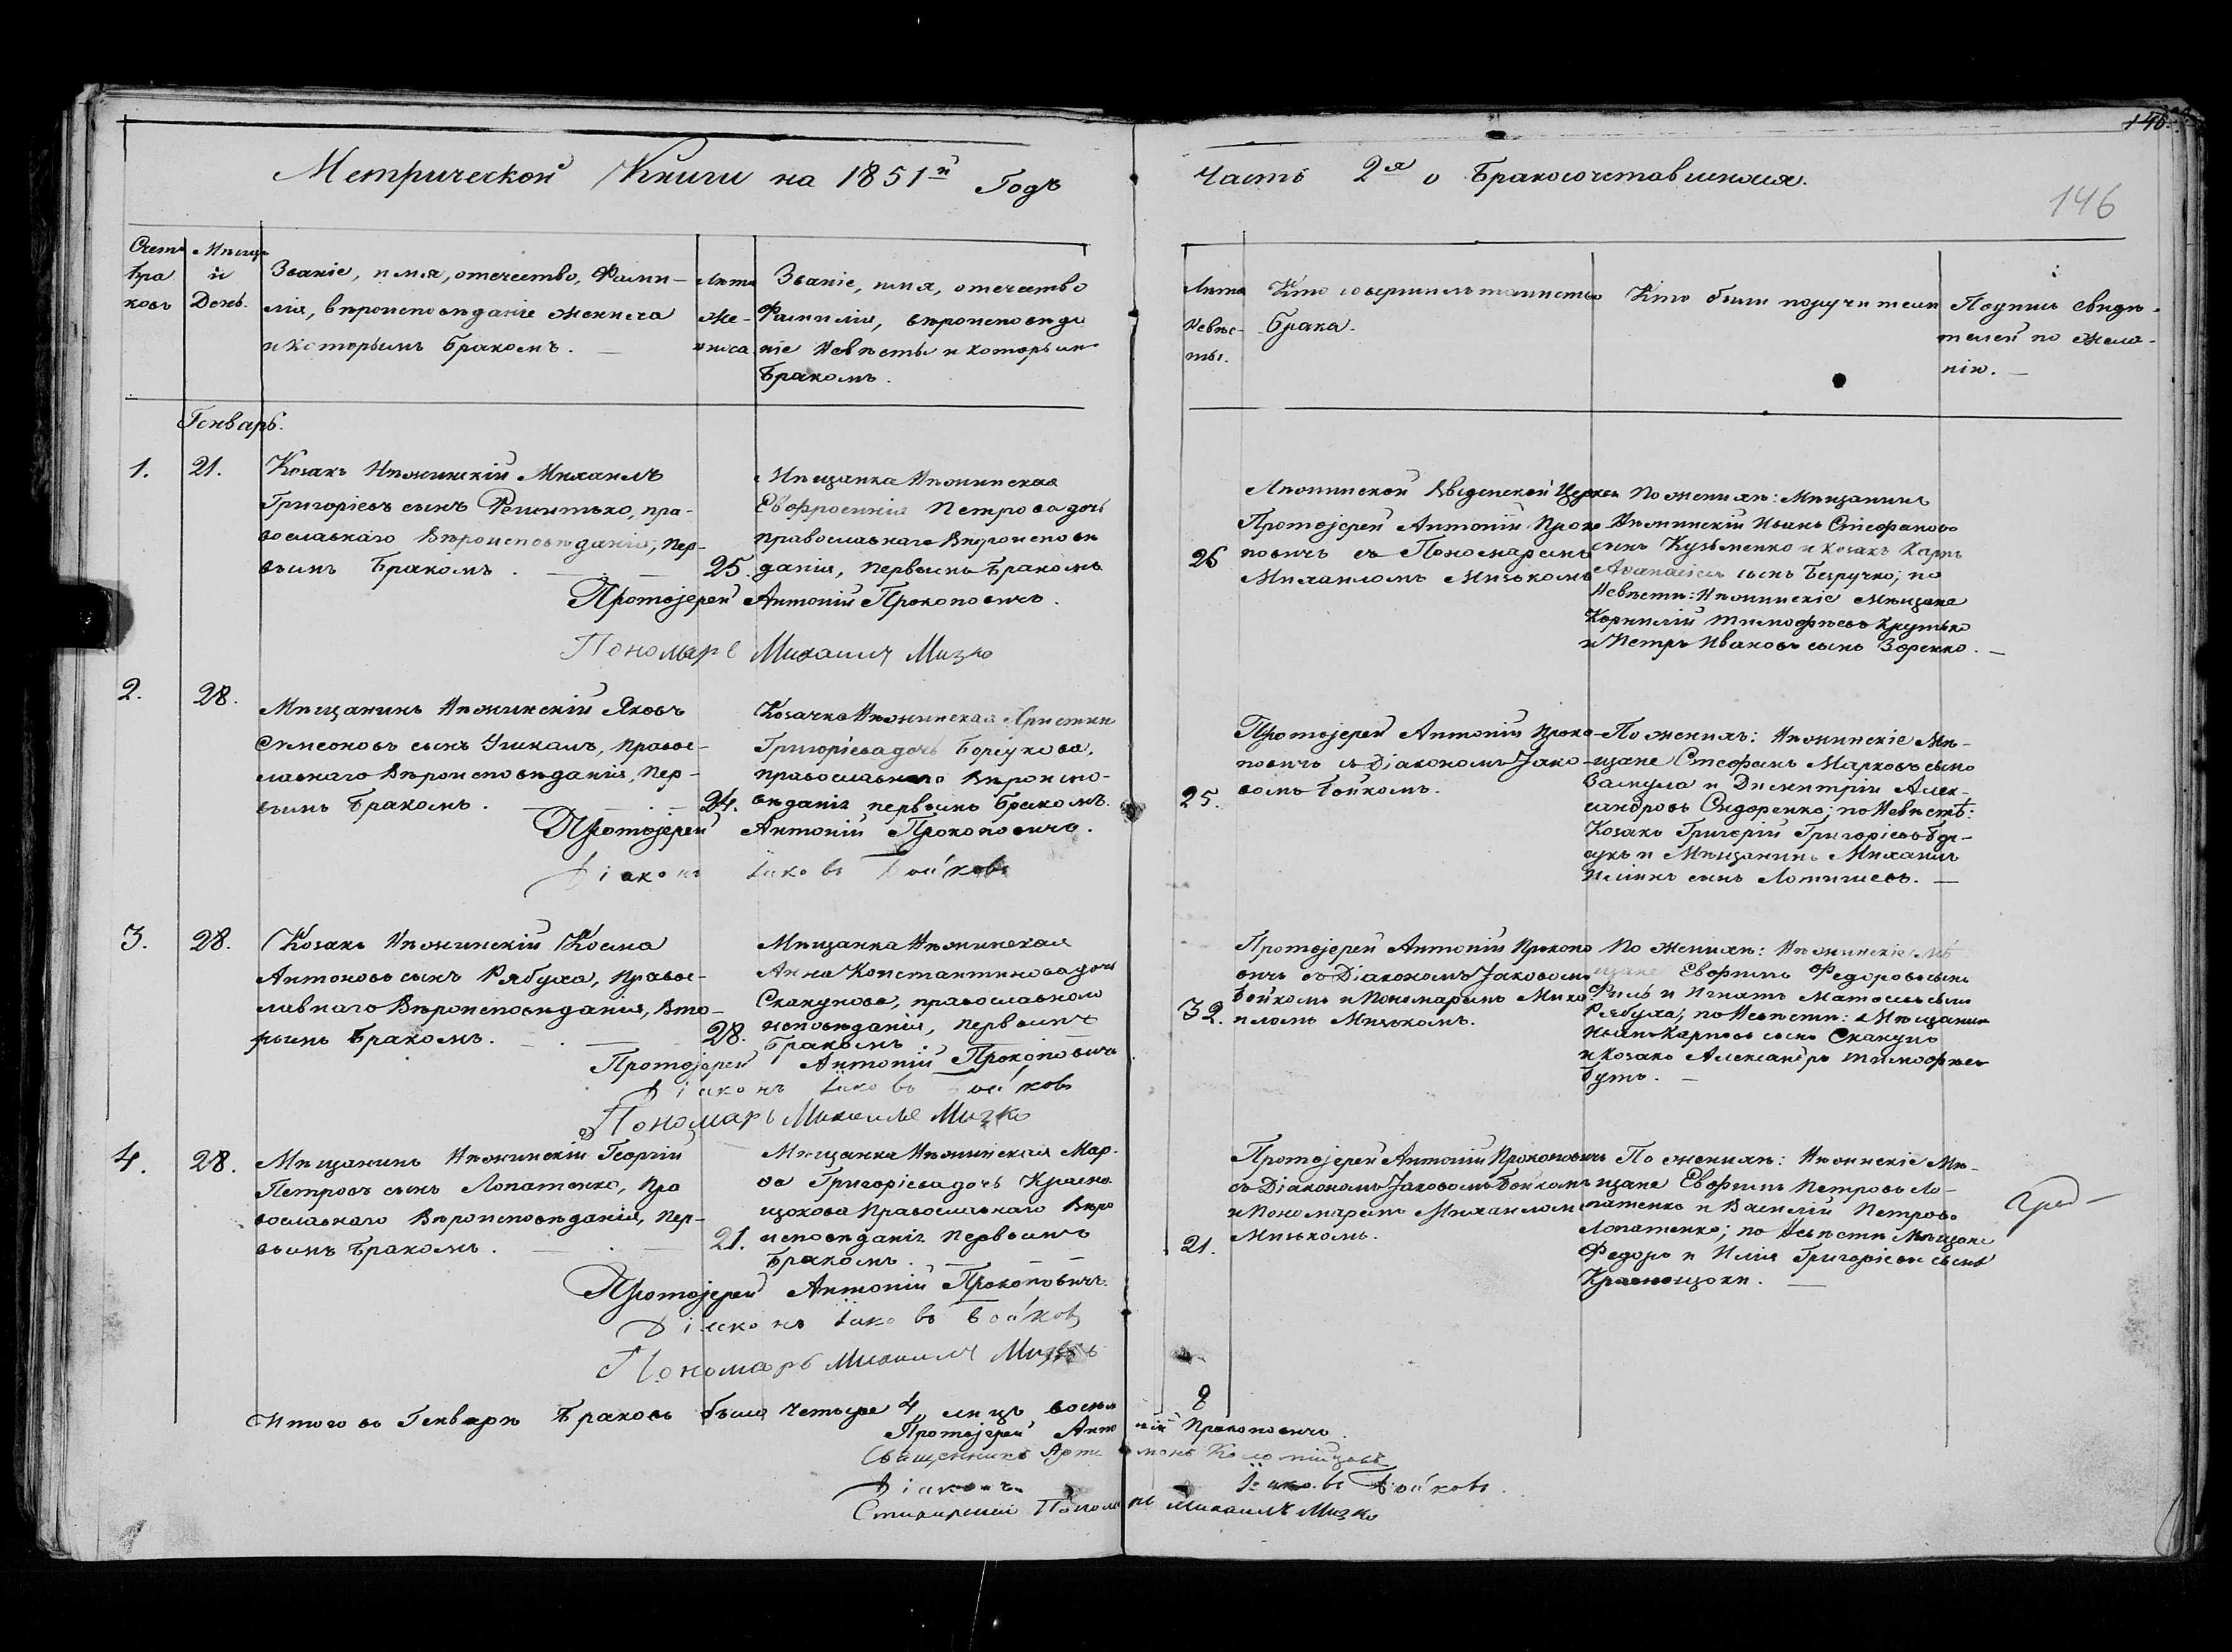 146.
Метрической Книги на 1851й Годъ
Часть 2я о Бракосочетавшихся.
146
Счетъ
бра
ковъ
Мѣсяцъ
и
День.
Званіе, имя, отечество, Фами-
лія, вѣроисповѣданіе жениха
и которымъ бракомъ. —
Лѣта
же-
ниха
Званіе, имя, отечество
Фамилія, вѣроисповѣда
ніе Невѣсты и которымъ
Бракомъ.
Лѣта
Невѣс-
ты.
Кто совершилъ таинство
Брака.
Кто были поручители
Подпись свидѣ-
телей по жела-
нію. —
Генварь.
1.
21.
Козакъ Нѣжинскій Михаилъ
Григорієвъ сынъ пра-
вославнаго Вѣроисповѣданія, пер-
вымъ Бракомъ.
25.
Мѣщанка Нѣжинская
Евфросинія Петрова дочь
православнаго Вѣроисповѣ
данія, первымъ Бракомъ
26
Нѣжинской Введенской Церкви
Протоіерей Антоній Проко
повичъ съ Пономаремъ
Михаиломъ Мизькомъ
По женихѣ: Мѣщанинъ
Нѣжинскій Иванъ Стефановъ
сынъ Кузьменко и козакъ Карпъ
Аѳанасіевъ сынъ Безручко; по
Невѣсти: Нѣжинскіе мѣщане
Корнилій Тимофѣевъ Крутько
и Петръ Ивановъ сынъ Зоренко. —
Протоіерей Антоній Прокоповичъ.
Пономарь Михаилъ Мизко
2.
28.
Мѣщанинъ Нѣжинскій Яковъ
Симеоновъ сынъ Ушкалъ, правос-
лавнаго Вѣроисповѣданія, пер-
вымъ Бракомъ.
24.
Козачка Нѣжинская Христина
Григоріева дочь Борсукова,
православнаго Вѣроиспо-
вѣданія первымъ бракомъ.
25.
Протоіерей Антоній Проко-
повичъ съ Діакономъ Јако-
вомъ Бойкомъ.
По женихѣ: Нѣжинскіе Мѣ-
щане Стефанъ Марковъ сынъ
и Димитрій Алек-
сандровъ Сидоренко; по Невѣстѣ:
Козакъ Григорій Григорієвъ Бор-
сукъ и Мѣщанинъ Михаилъ
Иліинъ сынъ —
Протоіерей Антоній Прокоповичъ.
Діаконъ Іаковъ Бойковъ
3.
28.
Козакъ Нѣжинскій Косма
Антоновъ сынъ Рябуха, правос-
лавнаго Вѣроисповѣданія, вто-
рымъ бракомъ.
28.
Мѣщанка Нѣжинская
Анна Константинова дочь
Скакунова, православнаго
исповѣданія, первымъ
Бракомъ.
32.
Протоіерей Антоній Прокопо
вичъ съ Діакономъ Јаковомъ
Бойкомъ и Пономаремъ Миха
иломъ Мизькомъ.
По женихѣ: Нѣжинскіе Мѣ
щане Евфимъ Федоровъ сынъ
и Игнатъ сынъ
Рябуха; по Невѣсти: Мѣщанинъ
Иванъ Карповъ сынъ Скакунъ
и Козакъ Александръ Тимофѣевъ
Бутъ. —
Протоіерей Антоній Прокоповичъ
Діаконъ Іаковъ Бойковъ
Пономарь Михаилъ Мизко
4.
28.
Мѣщанинъ Нѣжинскій Георгій
Петровъ сынъ Лопатенко, Пра
вославнаго Вѣроисповѣданія, пер-
вымъ бракомъ.
21.
Мѣщанка Нѣжинская Мар-
ѳа Григоріева дочь Красно
щокова Православнаго Вѣро
исповѣданія первымъ
Бракомъ.
21.
Протоіерей Антоній Прокоповичъ
съ Діакономъ Јаковомъ Бойкомъ
и Пономаремъ Михаиломъ
Мизькомъ.
По женихѣ: Нѣжинскіе Мѣ-
щане Евфимъ Петровъ Ло-
патенко и Василій Петровъ
Лопатенко; по Невѣсти Мѣщане
Федоръ и Илія Григорієвы сыны
Краснощоки. —
Протоіерей Антоній Прокоповичъ.
Діаконъ Іаковъ Бойковъ
Пономарь Михаилъ Мизко
Итого въ Генварѣ Браковъ было Четыре 4, лицъ восемь 8
Протоіерей Антоній Прокоповичъ.
Священникъ
Діаконъ Іаковъ Бойковъ.
Пономарь Михаилъ Мизко